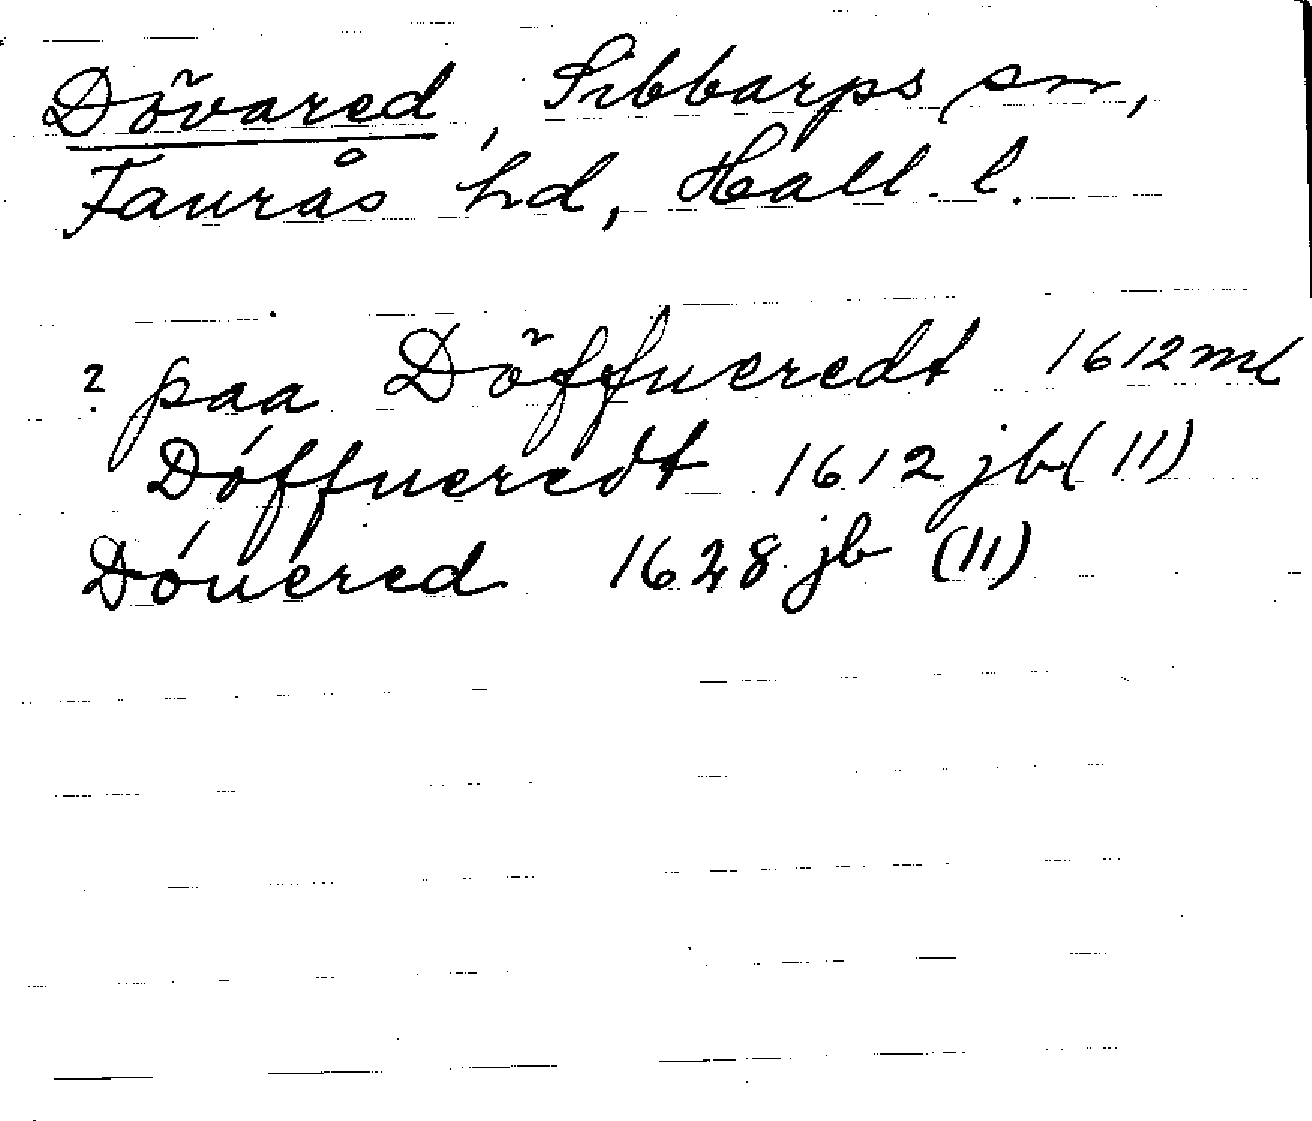 Dövared, Sibbarps sn,
Faurås hd, Hall. l.
? paa Döffueredt 1612 ml
Dóffueredt 1612 jb (11)
Dóuered 1628 jb (11)